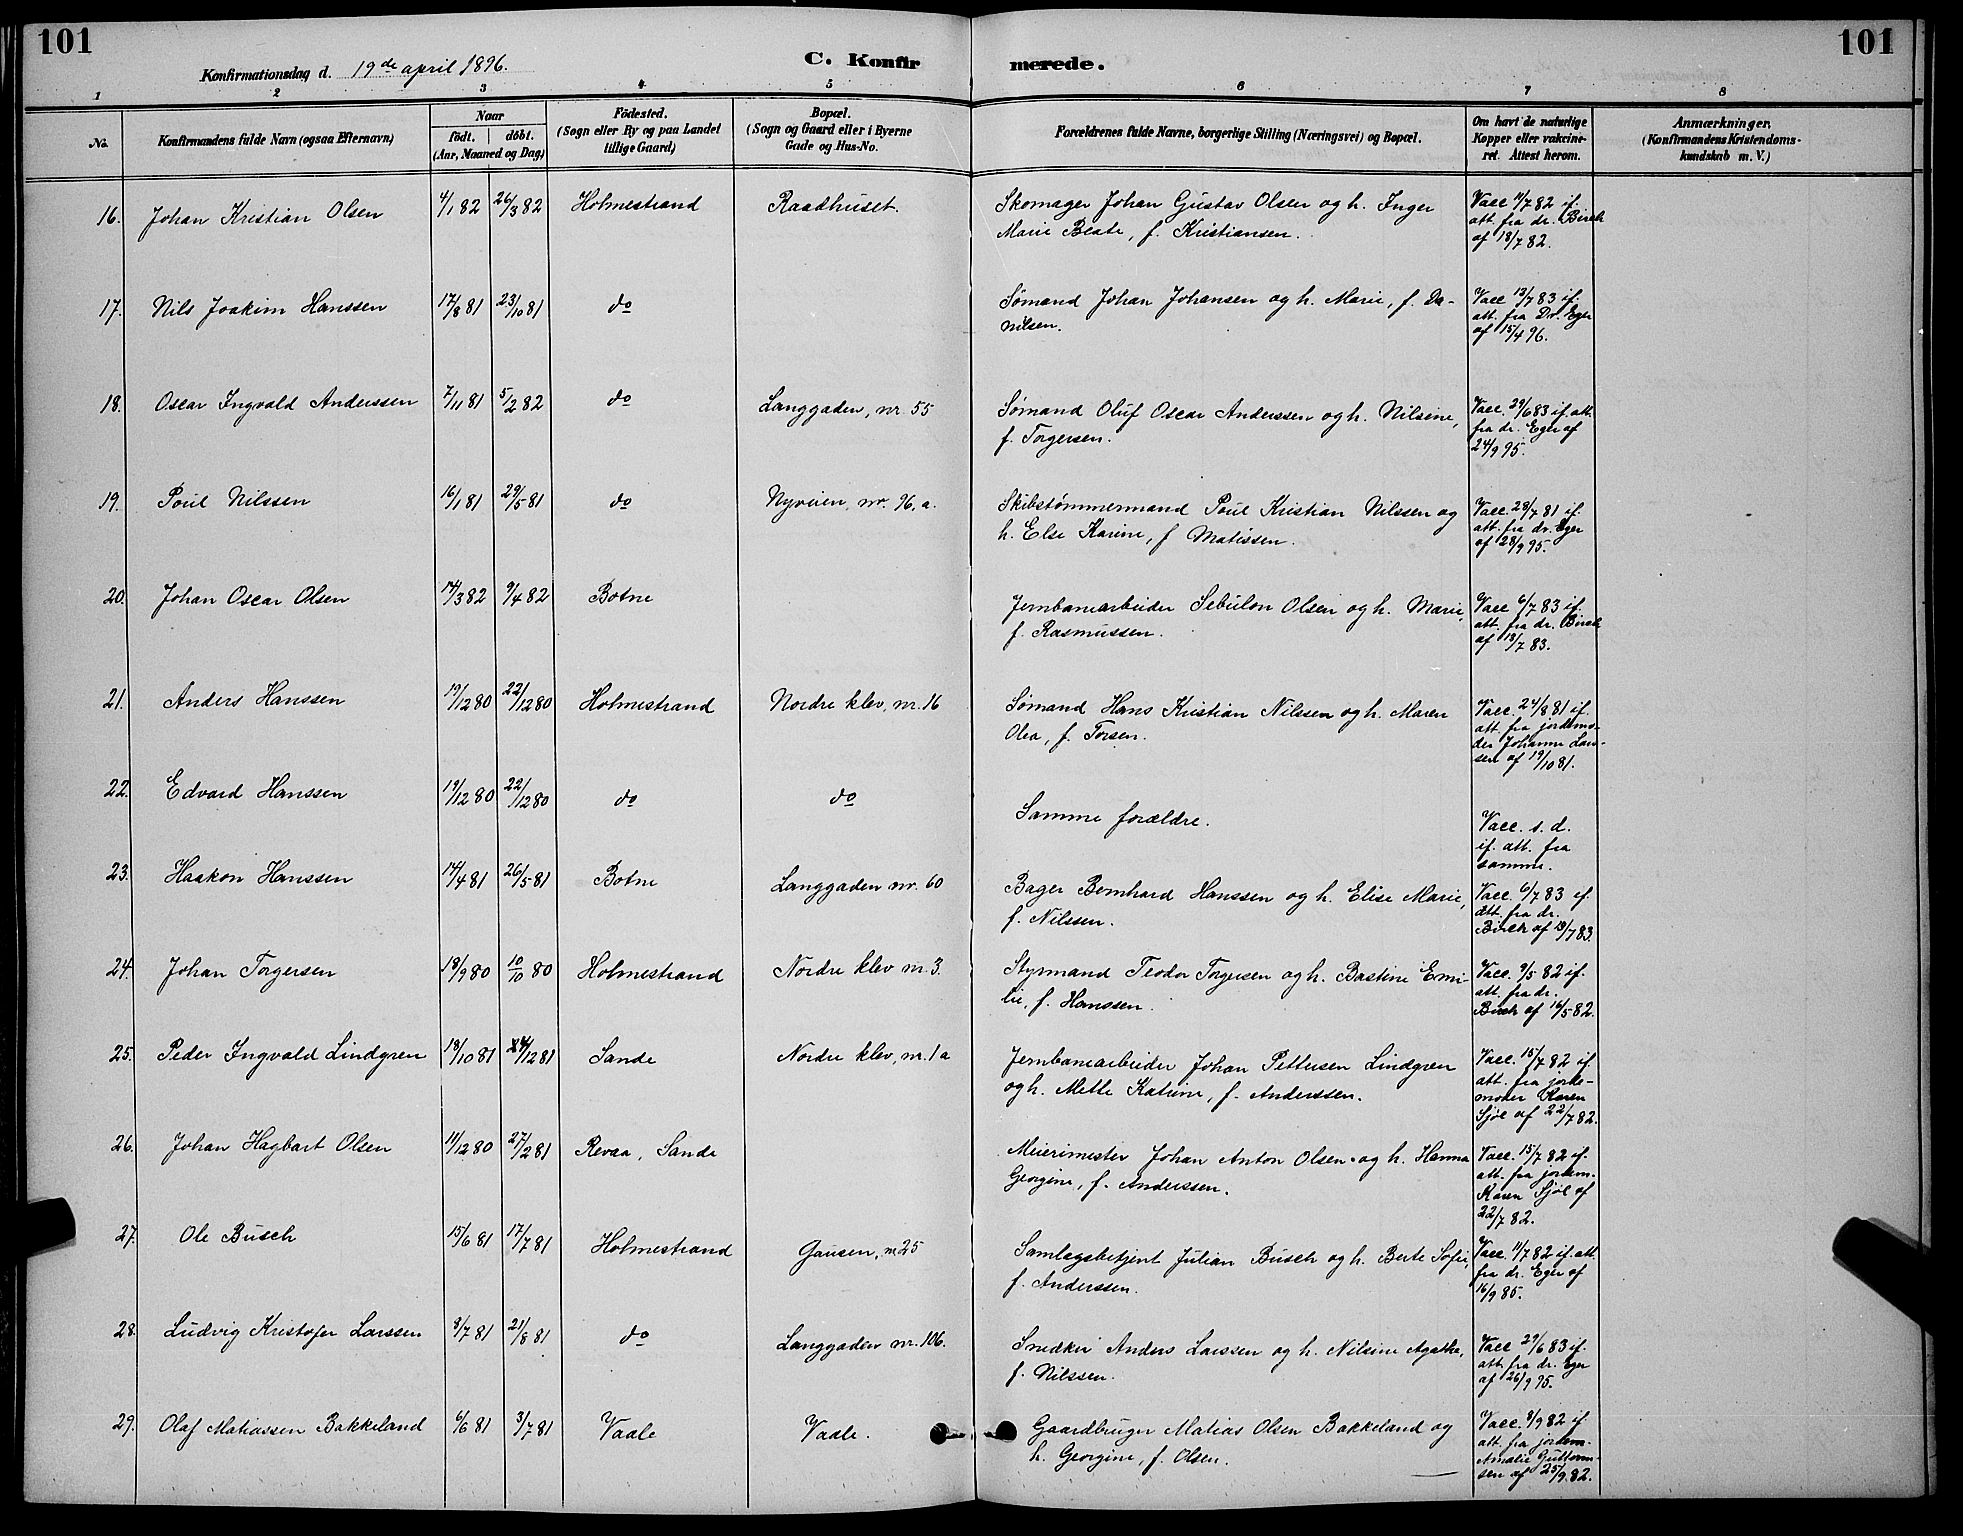 101
Konfirmationsdag d. 19de april 1896.
C. Konfirmerede.
101
1 2 3 4 5 6 7 8
No.
Konfirmandens fulde Navn (ogsaa Efternavn)
Naar
födt. döbt.
(Aar, Maaned og Dag)
Födested.
(Sogn eller By og paa Landet
tillige Gaard)
Bopæl.
(Sogn og Gaard eller i Byerne
Gade og Hus-No.
Forældrenes fulde Navne, borgerlige Stilling (Næringsvei) og Bopæl.
Om havt de naturlige
Kopper eller vakcine-
ret. Attest herom.
Anmærkninger.
(Konfirmandens Kristendoms-
kundskab m. V.)
16. Johan Kristian Olsen 4/1 82 26/3 82 Holmestrand Raadhuset.
Skomager Johan Gustav Olsen og h. Inger
Marie Beate, f. Kristiansen.
Vacc 11/7 82 if.
att. fra dr. Birch
af 18/7 82.
17. Nils Joakim Hanssen 17/8 81 23/10 81 do
Sømand Johan Johansen og h. Marie, f. Da-
nilsen.
Vacc 13/7 83 if.
att. fra Dr. Eger
af 15/4 96.
18. Oscar Ingvald Anderssen 7/11 81 5/2 82 do Langgaden, nr. 55
Sømand Oluf Oscar Anderssen og h. Nilsine,
f. Torgersen.
Vacc. 29/6 83 if. att.
fra dr. Eger af
24/9 95.
19. Poul Nilssen 16/1 81 29/5 81 do Nyveien, nr. 96, a.
Skibstømmermand Poul Kristian Nilssen og
h. Else Karine, f Matissen.
Vacc. 28/7 81 if.
att. fra dr. Eger
af 28/9 95.
20. Johan Oscar Olsen 14/3 82 9/4 82 Botne
Jernbanearbeider Sebulon Olsen og h. Marie,
f. Rasmussen.
Vacc 6/7 83 if.
att. fra dr. Birch
af 13/7 83.
21. Anders Hanssen 19/12 80 22/12 80 Holmestrand Nordre klev, nr. 16
Sømand Hans Kristian Nilssen og h. Maren
Olea, f. Torsen.
Vacc. 24/8 81 if.
att. fra jordemo-
der Johanne Lars-
sen af 19/10 81.
22. Edvard Hanssen 19/12 80 22/12 80 do do
Samme forældre.
Vacc. s. d.
if. att. fra
samme.
23. Haakon Hanssen 14/4 81 26/5 81 Botne Langgaden nr. 60
Bager Bernhard Hanssen og h. Elise Marie,
f. Nilssen.
Vacc. 6/7 83 if.
att. fra dr.
Birch af 13/7 83.
24. Johan Torgersen 18/9 80 10/10 80 Holmestrand Nordre klev nr. 3.
Styrmand Teodor Torgersen og h. Bastine Emi-
lie, f. Hanssen.
Vacc. 9/5 82 if.
att. fra dr.
Birch af 16/5 82.
25. Peder Ingvald Lindgren 18/10 81 24/12 81 Sande Nordre klev, nr. 1 a
Jernbanearbeider Johan Pettersen Lindgren
og h. Mette Katrine, f. Anderssen.
Vacc. 15/7 82 if.
att. fra jorde-
moder Karen
Sjøl af 22/7 82.
26. Johan Hagbart Olsen 11/12 80 27/2 81 Revaa, Sande
Meierimester Johan Anton Olsen og h. Hanna
Georgine, f. Anderssen.
Vacc. 15/7 82 if.
att. fra jordem.
Karen Sjøl af
22/7 82.
27. Ole Busch 15/6 81 17/7 81 Holmestrand Gausen, nr 25
Samlagsbetjent Julian Busch og h. Berte Sofie,
f. Anderssen.
Vacc. 11/7 82 if. att.
fra dr. Eger af
16/9 85.
28. Ludvig Kristofer Larssen 8/7 81 21/8 81 do Langgaden nr. 106.
Snedker Anders Larssen og h. Nilsine Agatha,
f. Nilssen.
Vacc 29/6 83 if.
att. fra dr. Eger
af 26/9 95.
29. Olaf Matiassen Bakkeland 6/6 81 3/7 81 Vaale Vaale.
Gaardbruger Matias Olsen Bakkeland og
h. Georgine, f. Olsen.
Vacc. 8/9 82 if.
att. fra jordem.
Amalie Guttorm-
sen af 25/9 82.